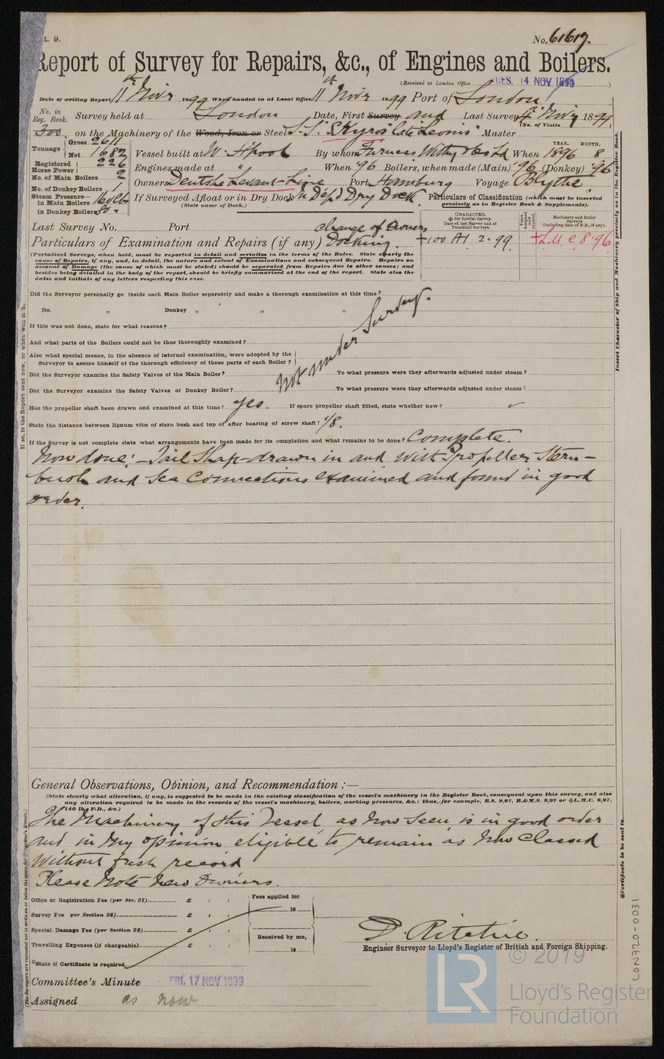 No. 61617.
Report of Survey for Repairs, &c., of Engines and Boilers.
(Received at London Office TUES. 14 NOV 1899
Date of writing Report 11th Novr 1899 When handed in at Local Office 11th Novr 1899 Port of London
No. in Reg. Book. Survey held at London Date, First Survey and Last Survey Novr 1899
(No. of Visits
300 on the Machinery of the Wood, Iron or Steel S.S. Master
Tonnage Gross 2617 Net 1682 Vessel built at W. Hpool By whom Furness Withy & Co Ld When 1896 8
YEAR. MONTH.
Registered Horse Power 226 Engines made at When 96 Boilers, when made (Main) 96 (Donkey) 96
No. of Main Boilers 2
No. of Donkey Boilers 1 Owners Deutsche Levant-Linie Port Hamburg Voyage Blythe
Steam Pressure in Main Boilers 160 lbs If Surveyed Afloat or in Dry Dock Dry Dock
(State name of Dock.)
in Donkey Boilers
Particulars of Classification (which must be inserted precisely as in Register Book & Supplements).
Last Survey No. Port change of Owners
Particulars of Examination and Repairs (if any) Docking.
+100 A1 2.99 +L.M.C. 8.96
(Periodical Surveys, when held, must be reported in detail and seriatim in the terms of the Rules. State clearly the
cause of Repairs, if any, and, in detail, the nature and extent of Examinations and subsequent Repairs. Repairs on
account of Damage (the cause of which must be stated) should be separated from Repairs due to other causes; and
besides being detailed in the body of the report, should be briefly summarised at the end of the report. State also the
dates and initials of any letters respecting this case.
Did the Surveyor personally go inside each Main Boiler separately and make a thorough examination at this time?
Do. „ Donkey „ „ „
If this was not done, state for what reasons?
And what parts of the Boilers could not be thus thoroughly examined?
Also what special means, in the absence of internal examination, were adopted by the
Surveyor to assure himself of the thorough efficiency of those parts of each Boiler?
Not under Survey.
Did the Surveyor examine the Safety Valves of the Main Boiler? To what pressure were they afterwards adjusted under steam?
Did the Surveyor examine the Safety Valves of Donkey Boiler? To what pressure were they afterwards adjusted under steam?
Has the propeller shaft been drawn and examined at this time? Yes. If spare propeller shaft fitted, state whether new?
State the distance between lignum vitæ of stern bush and top of after bearing of screw shaft? 1/8.
If the Survey is not complete state what arrangements have been made for its completion and what remains to be done? Complete.
Now done:- Tail Shaft drawn in and with Propeller, Stern-
bush and Sea Connections examined and found in good
order.
General Observations, Opinion, and Recommendation:—
(State clearly what alteration, if any, is suggested to be made in the existing classification of the vessel's machinery in the Register Book, consequent upon this survey, and also
any alteration required to be made in the records of the vessel's machinery, boilers, working pressures, &c.: thus, for example, B.S. 9,97, B.&M.S. 9,97 or L.M.C. 9,97,
140 lb., F.D., &c.)
The Machinery of this Vessel as now seen is in good order
and in my opinion eligible to remain as now Classed
without fresh record
Please Note New Owners.
Office or Registration Fee (per Sec. 27) £ : :
Survey Fee per Section 28) £ : :
Special Damage Fee (per Section 28) £ : :
Travelling Expenses (if chargeable) £ : :
State if Certificate is required
Fees applied for
18
Received by me,
18
D. Ritchie.
Engineer Surveyor to Lloyd's Register of British and Foreign Shipping.
Committee's Minute FRI. 17 NOV 1899
Assigned as now
LON720-0031
© 2019
LR
Lloyd's Register
Foundation